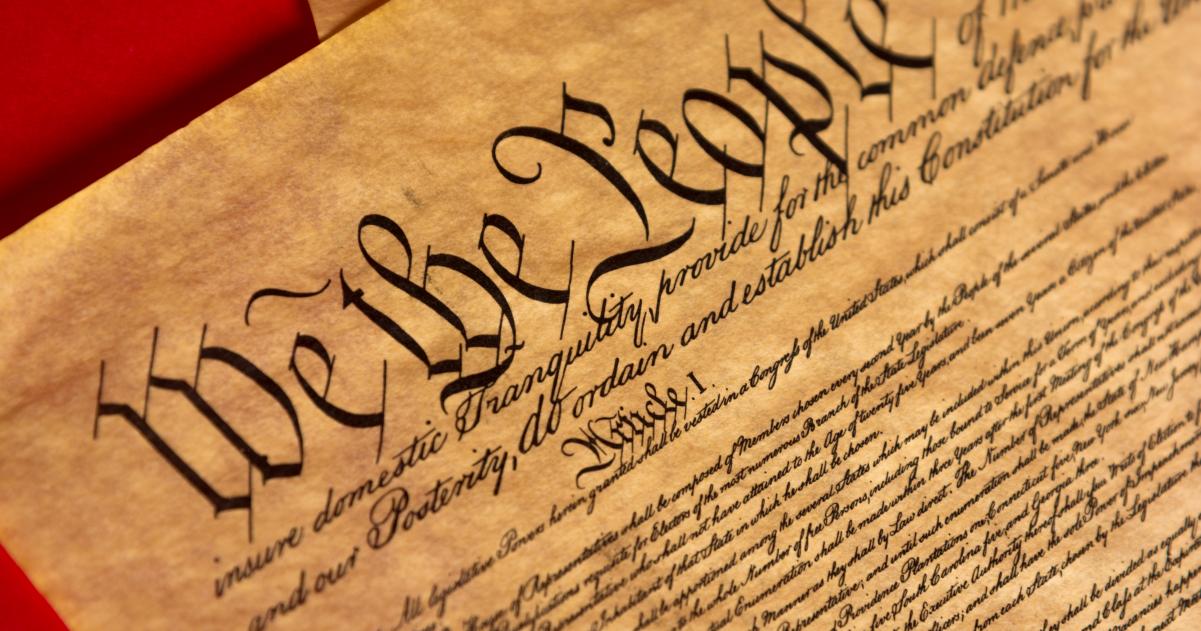 We the People of
insure domestic Tranquility, provide for the common defence,
and our Posterity, do ordain and establish this Constitution for the
Article I.
All legislative Powers herein granted shall be vested in a Congress of the United States, which shall consist of a Senate and
House of Representatives shall be composed of Members chosen every second Year by the People of the several States, and the
requisite for Electors of the most numerous Branch of the State Legislature.
Representative who shall not have attained to the Age of twenty five Years, and been seven Years a Citizen of the United States,
Inhabitant of that State in which he shall be chosen.
shall be apportioned among the several States which may be included within this Union, according to their
to the whole Number of free Persons, including those bound to Service for a Term of Years, and
Enumeration shall be made within three Years after the first Meeting of the Congress of the
Manner as they shall by Law direct. The Number of Representatives shall not
Representative; and until such enumeration shall be made, the State of New
and Providence Plantations one, Connecticut five, New York six, New Jersey
five, South Carolina five, and Georgia three.
the Executive Authority thereof shall issue Writs of Election to
Officers; and shall have the sole Power of Impeachment
from each State, chosen by the Legislature
they shall be divided as equally